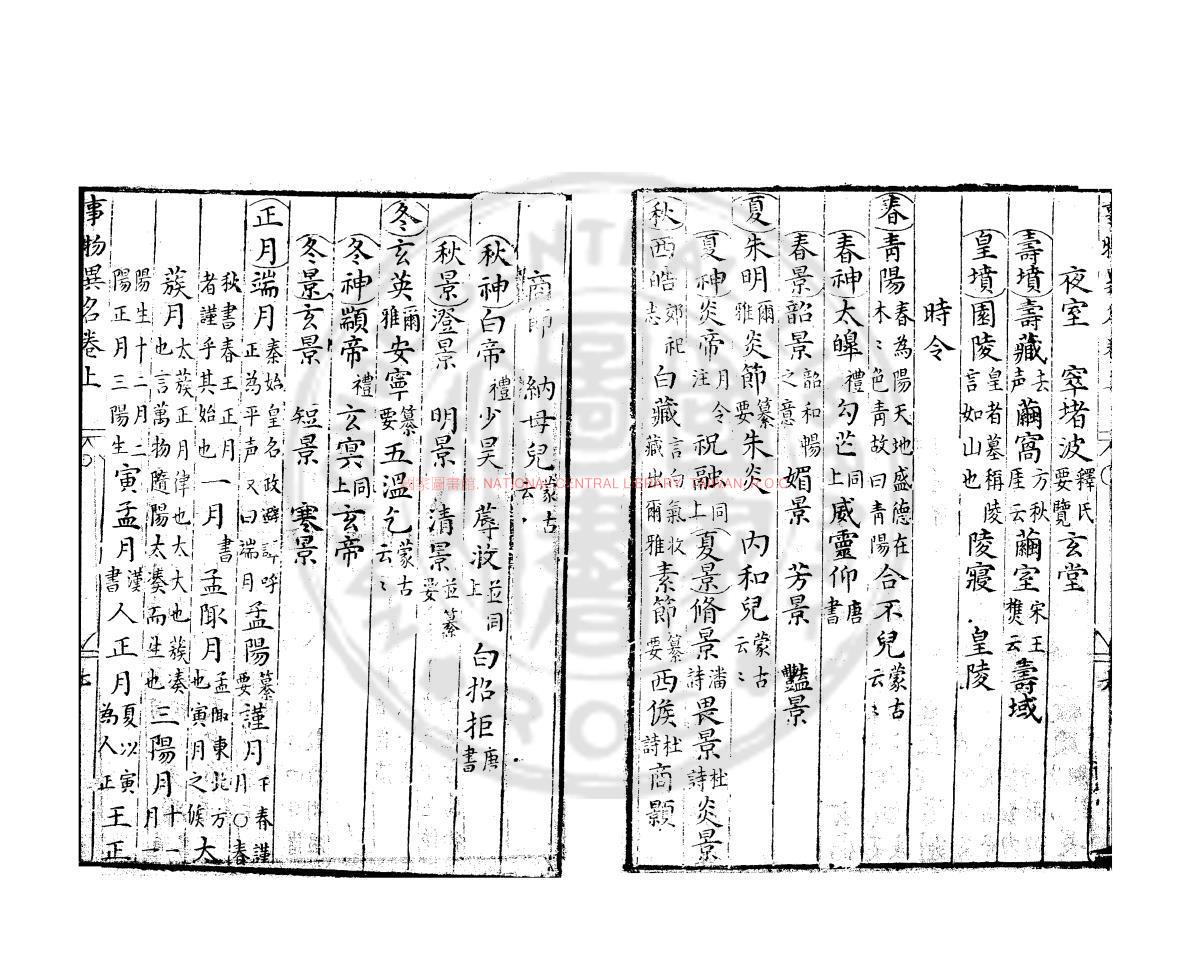 夜室　窣堵波釋氏要覽玄堂
壽墳壽藏去声繭窩方秋厓云繭室宋王樵云壽域
皇墳園陵皇者墓稱陵言如山也陵寢　皇陵
時令
春青陽春為陽天地盛德在木〻色青故曰青陽合不兒蒙古云〻
春神太皞禮勾芒同上威靈仰唐書
春景韶景韶和暢之意媚景　芳景　豔景
夏朱明爾雅炎節纂要朱炎　內和兒蒙古云〻
夏神炎帝月令注祝融同上夏景脩景潘詩畏景杜詩炎景
秋西皓郊祀志白藏言白氣收藏出爾雅素節纂要西候杜詩商顥
商節　納母兒蒙古云
秋神白帝禮少昊　蓐收並同上白招拒唐書
秋景澄景　明景　清景並纂要
冬玄英爾雅安寧纂要五溫乞蒙古云〻
冬神顓帝禮玄冥同上玄帝
冬景玄景　短景　寒景
正月端月秦始皇名政避諱呼正為平声又曰端月孟陽纂要謹月
秋書春王正月者謹乎其始也一月書孟陬月孟陬東北方也寅月之候大
蔟月太蔟正月律也大大也蔟湊也言萬物隨陽太湊而生也三陽月十一月一
陽生十二月二陽正月三陽生寅孟月漢書人正月夏以寅為人正王正
事物異名卷上